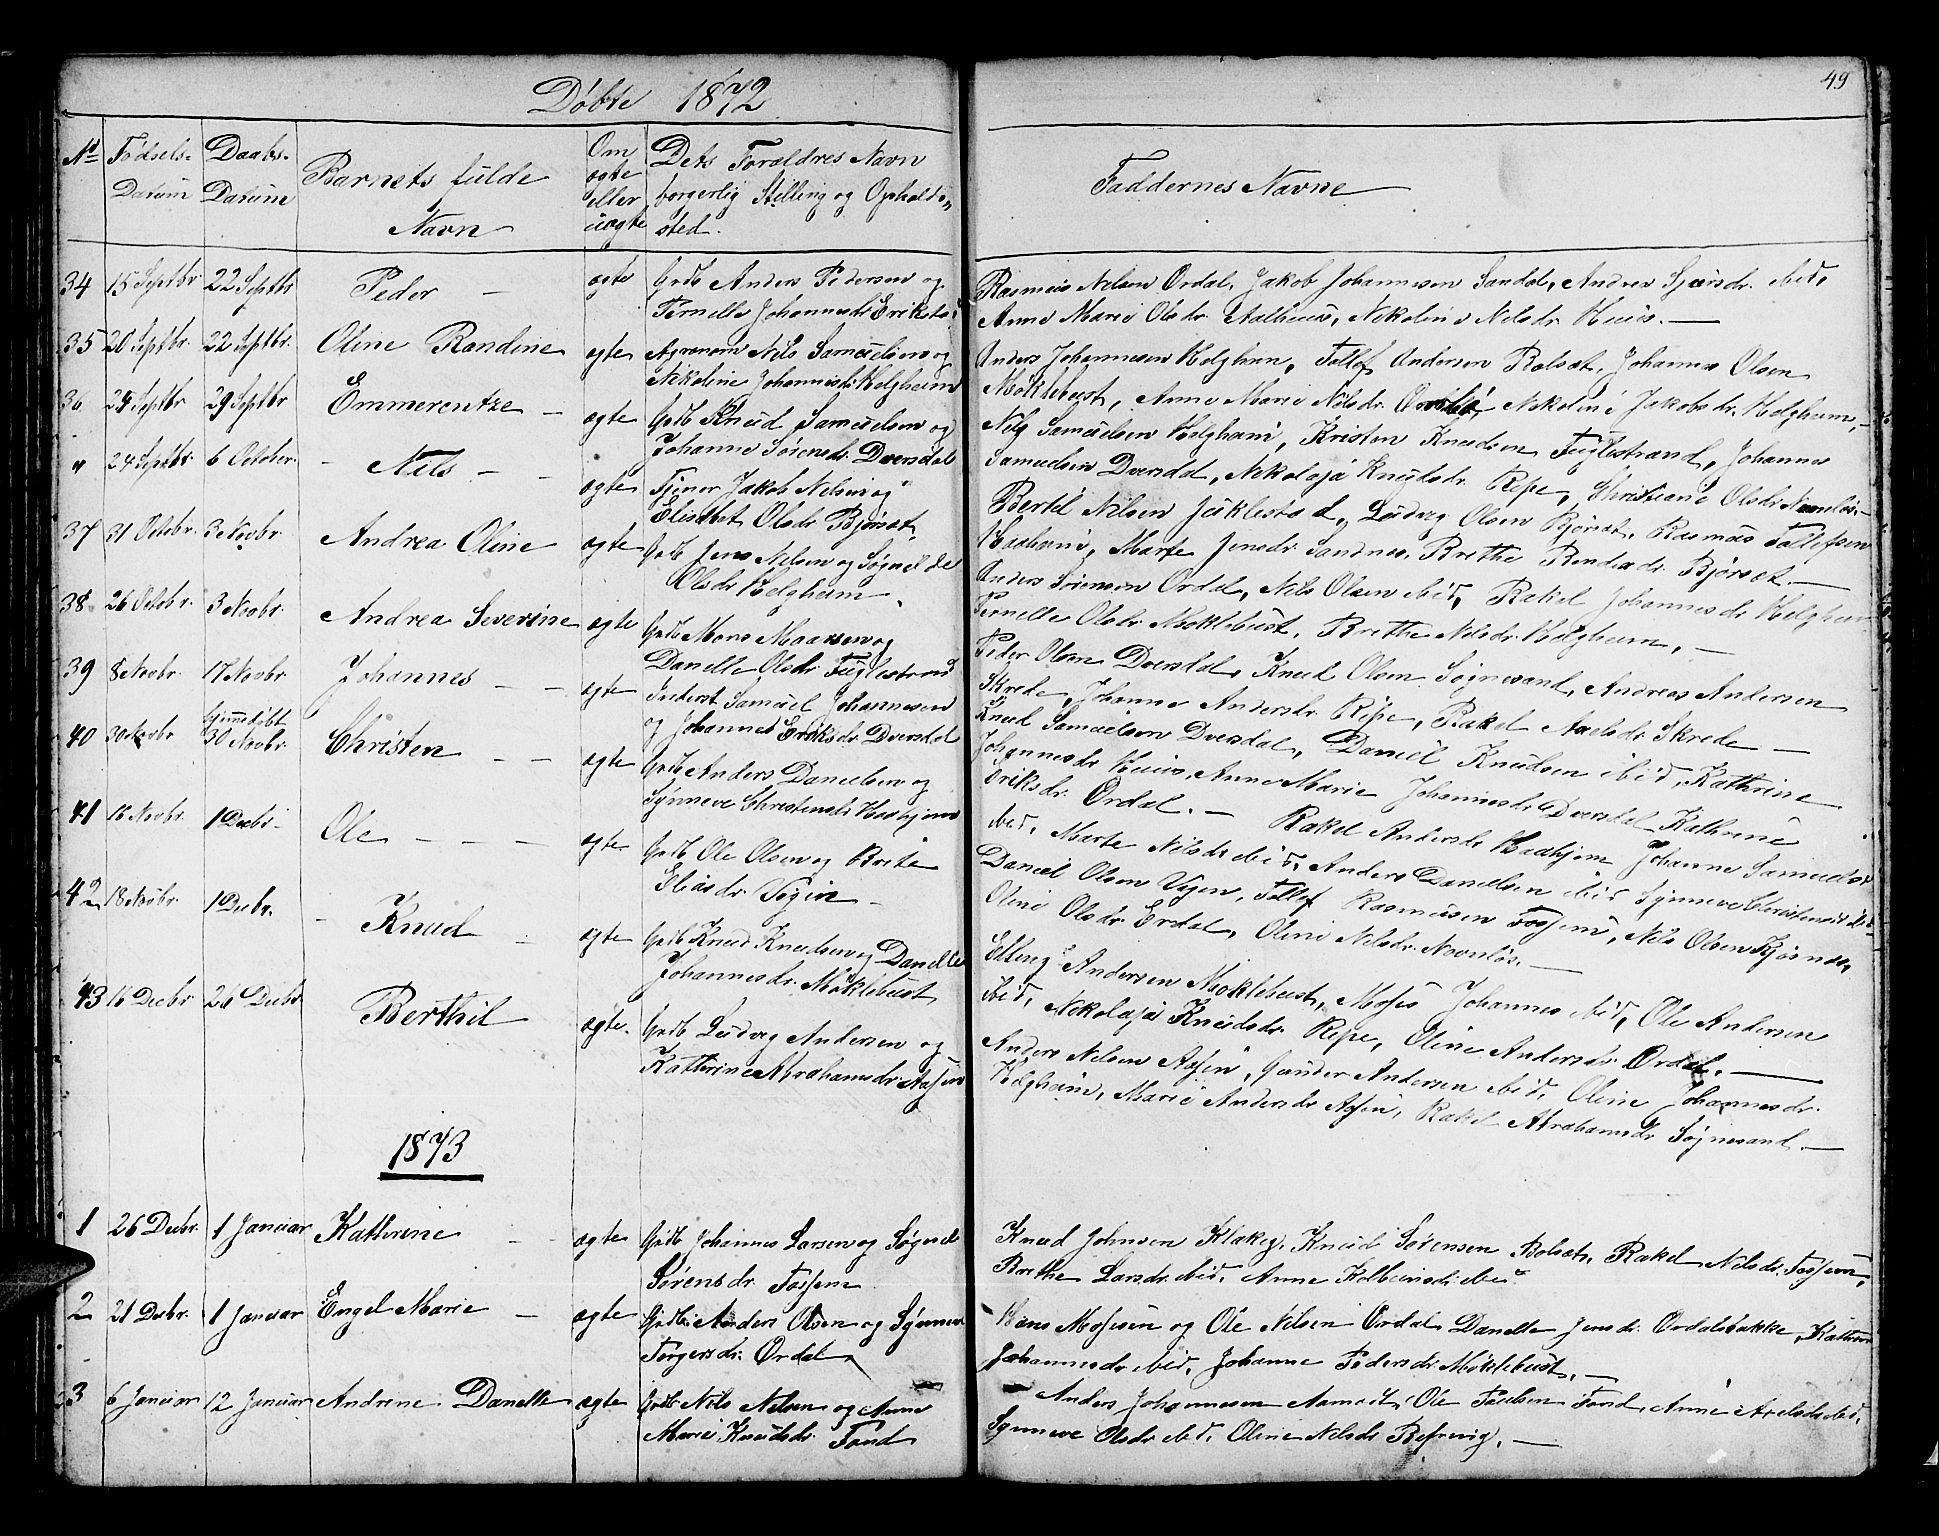 Døbte 1872
49
No
Fødsels-
Datum
Daabs-
Datum
Barnets fulde
Navn
Om
ægte
eller
uægte
Dets Forældres Navn
borgerlig Stilling og Opholds-
sted.
Faddernes Navne
34 15 Septbr 22 Septbr Peder - ægte Grdb Anders Pedersen og
Pernelle Johannesdr
Rasmus Nelsen Ordal, Jakob Johannesen Sandal, Andrea ibid,
Anne Marie Olsdr. Aalhuus, Nikoline Nilsdr. Huus.
35 20 Septbr. 22 Septbr. Oline Randine ægte Agronom Nils Samuelsen og
Nikoline Johannesdr Helgheim
Anders Johannesen Helgheim, Tollef Andersen Bolsæt, Johannes Olsen
Møklebust, Anne Marie Nilsdr. Nikoline Jakobsdr. Helgheim,
36. 24 Septbr 29 Septbr Emmerentze - ægte Grdb Knud Samuelsen og
Johanne Sørensdr. Dversdal
Nils Samuelsen Helgheim, Kristen Knudsen Fuglestrand, Johannes
Samuelsen Dversdal, Nikolaja Knudsdr. Repe, Christiane Olsdr Navnløs.
" 24 Septbr. 6 October. - Nils - ægte Tjener Jakob Nelsen og
Elisabet Olsdr Bjørset
Bertel Nilsen Jüklestad, Ludvig Olsen Bjørset, Rasmus Tollefsen
Haaheim, Marte Jensdr. Sandnes, Brethe Bendixdr. Bjørset.
37 31 Octobr. 3 Novbr. Andrea Oline ægte Grdb Jens Nelsen og Søgnelde
Olsdr Helgheim
Anders Sørensen Ordal, Nils Olsen ibid, Rakel Johannesdr Helgheim
Pernelle Olsdr Møklebust, Brethe Nilsdr. Helgheim,
38. 26 Octobr. 3 Novbr. Andrea Severine ægte Grdb Mons Monsen og
Danelle Olsdr Fuglestrand
Peder Olsen Dversdal, Knud Olsen Søgnesand, Andreas Andersen
Skrede, Johanne Andersdr. Repe, Rakel Axelsdr Skrede
39 8 Novbr. 17 Novbr Johannes - - ægte Inderst Samuel Johannesen
og Johanne Eriksdr Dversdal
Knud Samuelsen Dversdal, Daniel Knudsen ibid, Kathrine
Johannesdr Huus, Anne Marie Johannesdr Dversdal Kathrine
Eriksdr. Ordal.
40 30 Novbr hjemmedøbt
30 Novbr. Christen - - ægte Grdb Anders Danielsen og
Synneve Christensdr Haahjem
Rakel Andersdr Haahjem Johanne Samuelsdr
ibid, Marte Nilsdr ibid, Anders Danielsen ibid Synneve Christensdr ibid
41 16 Novbr. 1 Decbr. Ole - - - ægte. Grdb Ole Olsen og Brite
Eliasdr Vegen
Daniel Olsen Vegen, Tollef Rasmusen Fossem, Nils Olsen Kjøsnes,
Oline Olsdr. Erdal, Oline Nilsdr. Navnløs.
42 18 Novbr. 1 Decbr. - Knud ægte Grdb Knud Knudsen og Danelle
Johannesdr. Møklebust
Elling Andersen Møklebust, Moses Johannes ibid, Ole Andersen
ibid, Nikolaja Knudsdr. Repe, Oline Andersdr. Ordal.
43 16 Decbr 26 Decbr Berthil ægte. Grdb Ludvig Andersen og
Kathrine Abrahamsdr. Aasen
Anders Nelsen Aasen, Gunder Andersen ibid, Oline Johannesdr.
Helgheim, Marie Andersdr Aasen, Rakel Abrahamsdr. Søgnesand.
1873
1 26 Decbr. 1 Januar Kathrine - ægte Grdb Johannes Larsen og Søgnel
Sørensdr. Fossem
Knud Johnsen Klakeg, Knud Sørensen Bolsæt, Rakel Nilsdr. Fossem,
Brethe Larsdr. ibid, Anne Kolbeinsdr. ibid
2 21 Decbr. 1 Januar Engel Marie - ægte Grdb. Anders Olsen og Synneve
Torgersdr. Ordal
Hans Mossesen og Ole Nilsen Ordal, Danelle Jensdr. Ordalsbakke, Kathrine
Johannesdr. ibid, Johanne Pedersdr. Møklebust.
3 6 Januar 12 Januar Andrine Danelle ægte Grdb Nils Nilsen og Anne
Marie Knudsdr. Fond
Anders Johannesen Aamot, Ole Paulsen Fond, Anne Axelsdr ibid,
Synneve Olsdr. ibid, Oline Nilsdr Befring.